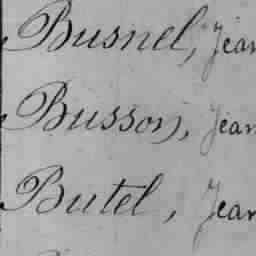 Busnel, Jean
Busson, Jean
Butel, Jean